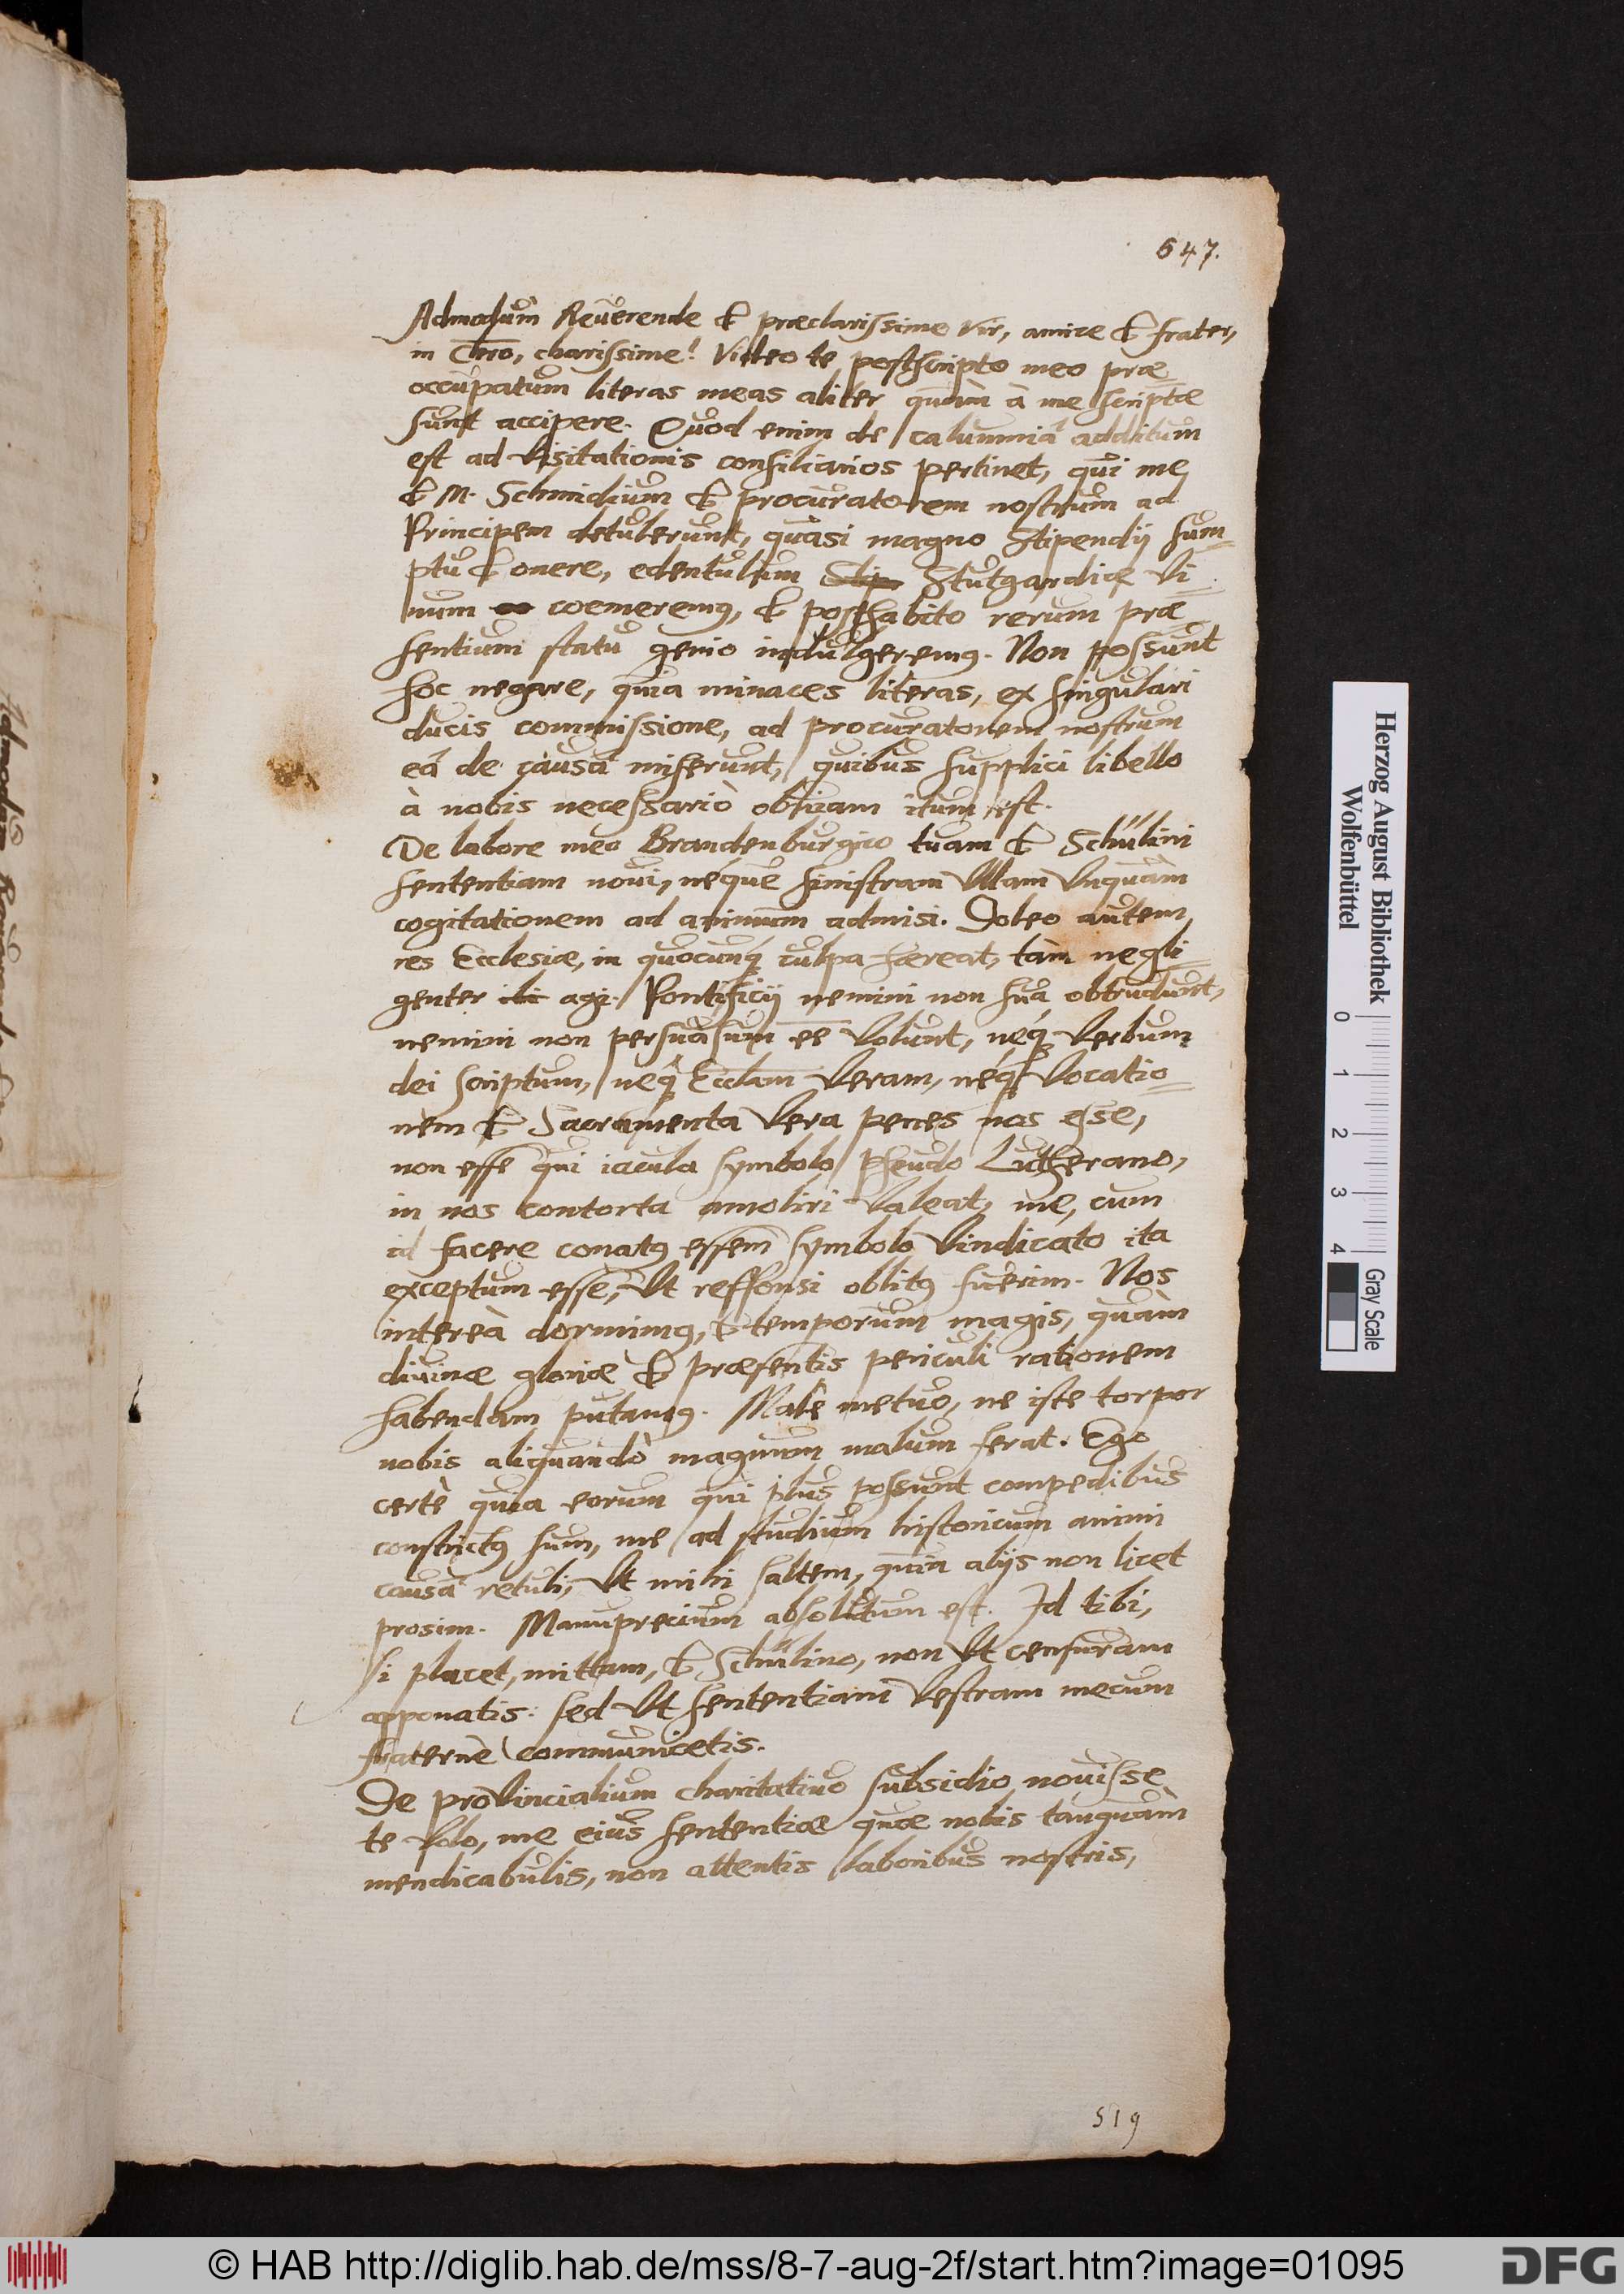 547.
Admodum Reuerende & præclarissime Vir, amice & frater,
in Chro, charissime! Video te postscripto meo præ
occupatum literas meas aliter quàm à me scriptæ
sunt accipere. Quod enim de calumniâ additum
est ad Visitationis consiliarios pertinet, qui me
& M. Schmidium & procuratorem nostrum ad
Principem detulerunt, quasi magno Stipendij sum=
ptu & onere, edentulum Stutgardiæ Vi=
num coemeremus, & posthabito rerum præ
sentium statu genio indulgeremus. Non possunt
hoc negare, quia minaces literas, ex singulari
ducis commissione, ad procuratorem nostrum
eâ de causâ miserunt, quibus supplici libello
à nobis necessariò obuiam itum est.
De labore meo Brandenburgico tuam & Schülini
sententiam noui, neque sinistram Vllam Vnquàm
cogitationem ad animum admisi. Doleo autem
res Ecclesiæ, in quocunq culpa hæreat, tàm negli=
genter agi. Pontificij nemini non sua obtrudunt,
nemini non persuasum ee Volunt, neq Verbum
dei scriptum, neq Ecclam Veram, neq Vocatio=
nem & Sacramenta Vera penes nos esse,
non esse qui iacula symbolo pseudo Lutherano,
in nos contorta amoliri Valeat, me, cum
id facere conatus essem symbolo Vindicato ita
exceptum esse, Vt responsi oblitus fuerim. Nos
intereà dormimus, & temporum magis, quàm
diuinæ gloriæ & præsentis periculi rationem
habendam putamus. Malè metuo, ne iste torpor
nobis aliquandò magnum malum ferat. Ego
certè quia eorum qui plus possunt compedibus
constrictus sum, me ad studium historicum animi
causâ retuli, Vt mihi saltem, quia alijs non licet
prosim. Manuprecium absolutum est. Id tibi,
si placet, mittam, & Schülino, non Vt censuram
apponatis: sed Vt sententiam Vestram mecum
fraternè communicetis.
De proVincialium charitatiuo subsidio nouisse
te Volo, me eius sententiæ quæ nobis tanquàm
mendicabulis, non attentis laboribus nostris,
519
Herzog August Bibliothek
Wolfenbüttel
0 1 2 3 4
Gray Scale
© HAB http://diglib.hab.de/mss/8-7-aug-2f/start.htm?image=01095
DFG